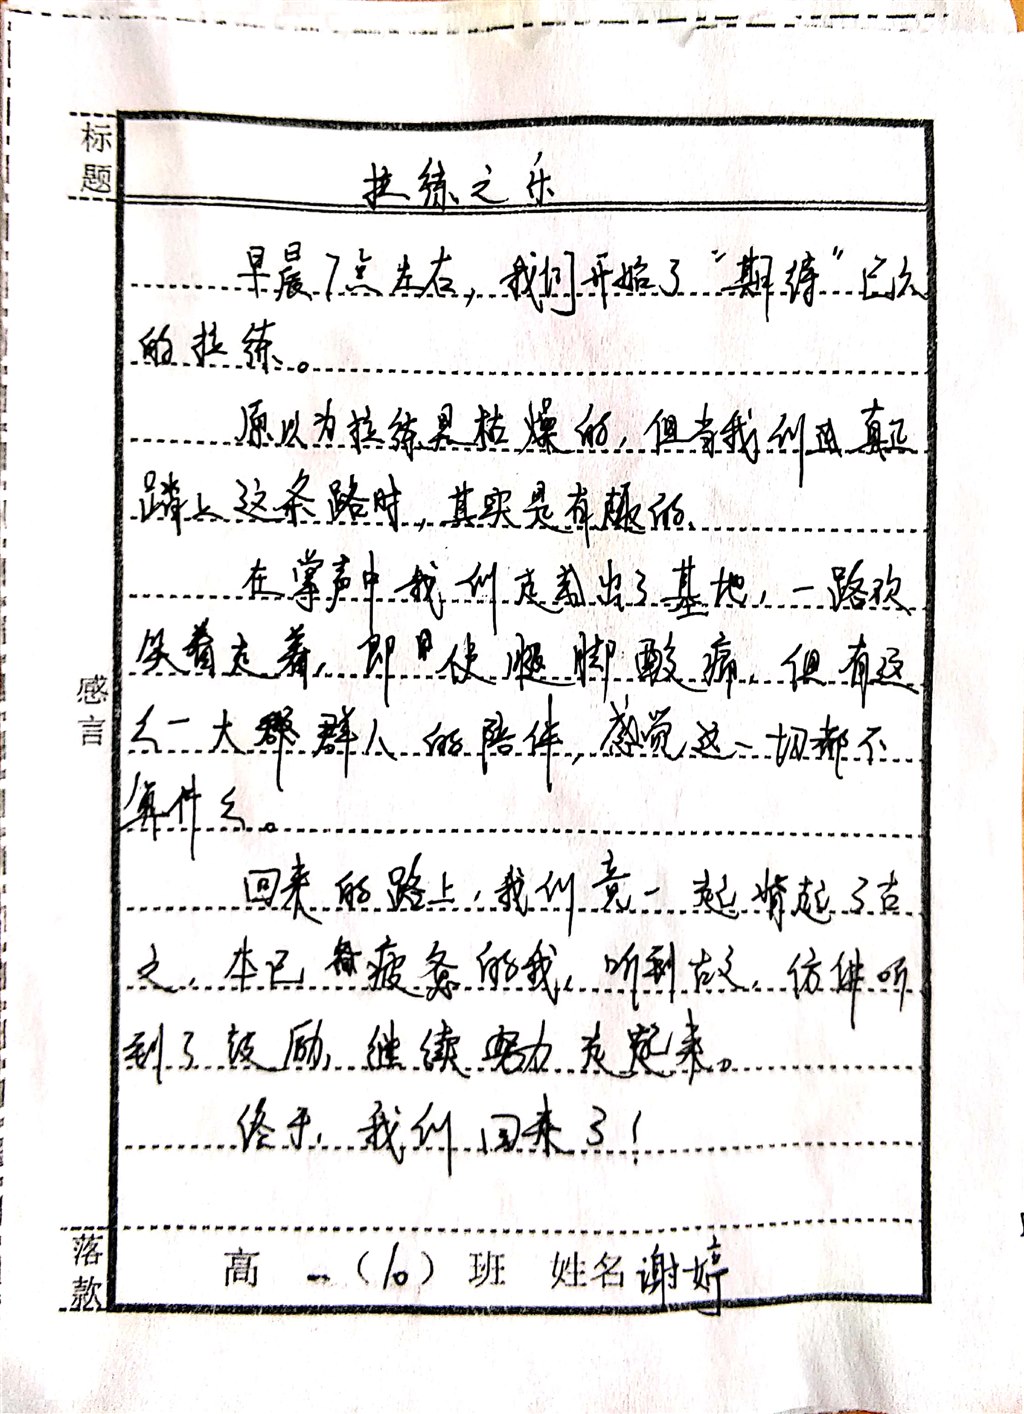 标题
拉练之乐
早晨7点左右，我们开始了“期待”已久
的拉练。
原以为拉练是枯燥的，但当我们真正
踏上这条路时，其实是有趣的。
在掌声中我们走出了基地，一路欢
笑着走着，即使腿脚酸痛，但有这
么一大群人的陪伴，感觉这一切都不
算什么。
感言
回来的路上，我们竟一起背起了古
文，本已疲惫的我，听到古文，仿佛听
到了鼓励，继续努力走起来。
终于，我们回来了！
落款
高一（10）班 姓名 谢婷